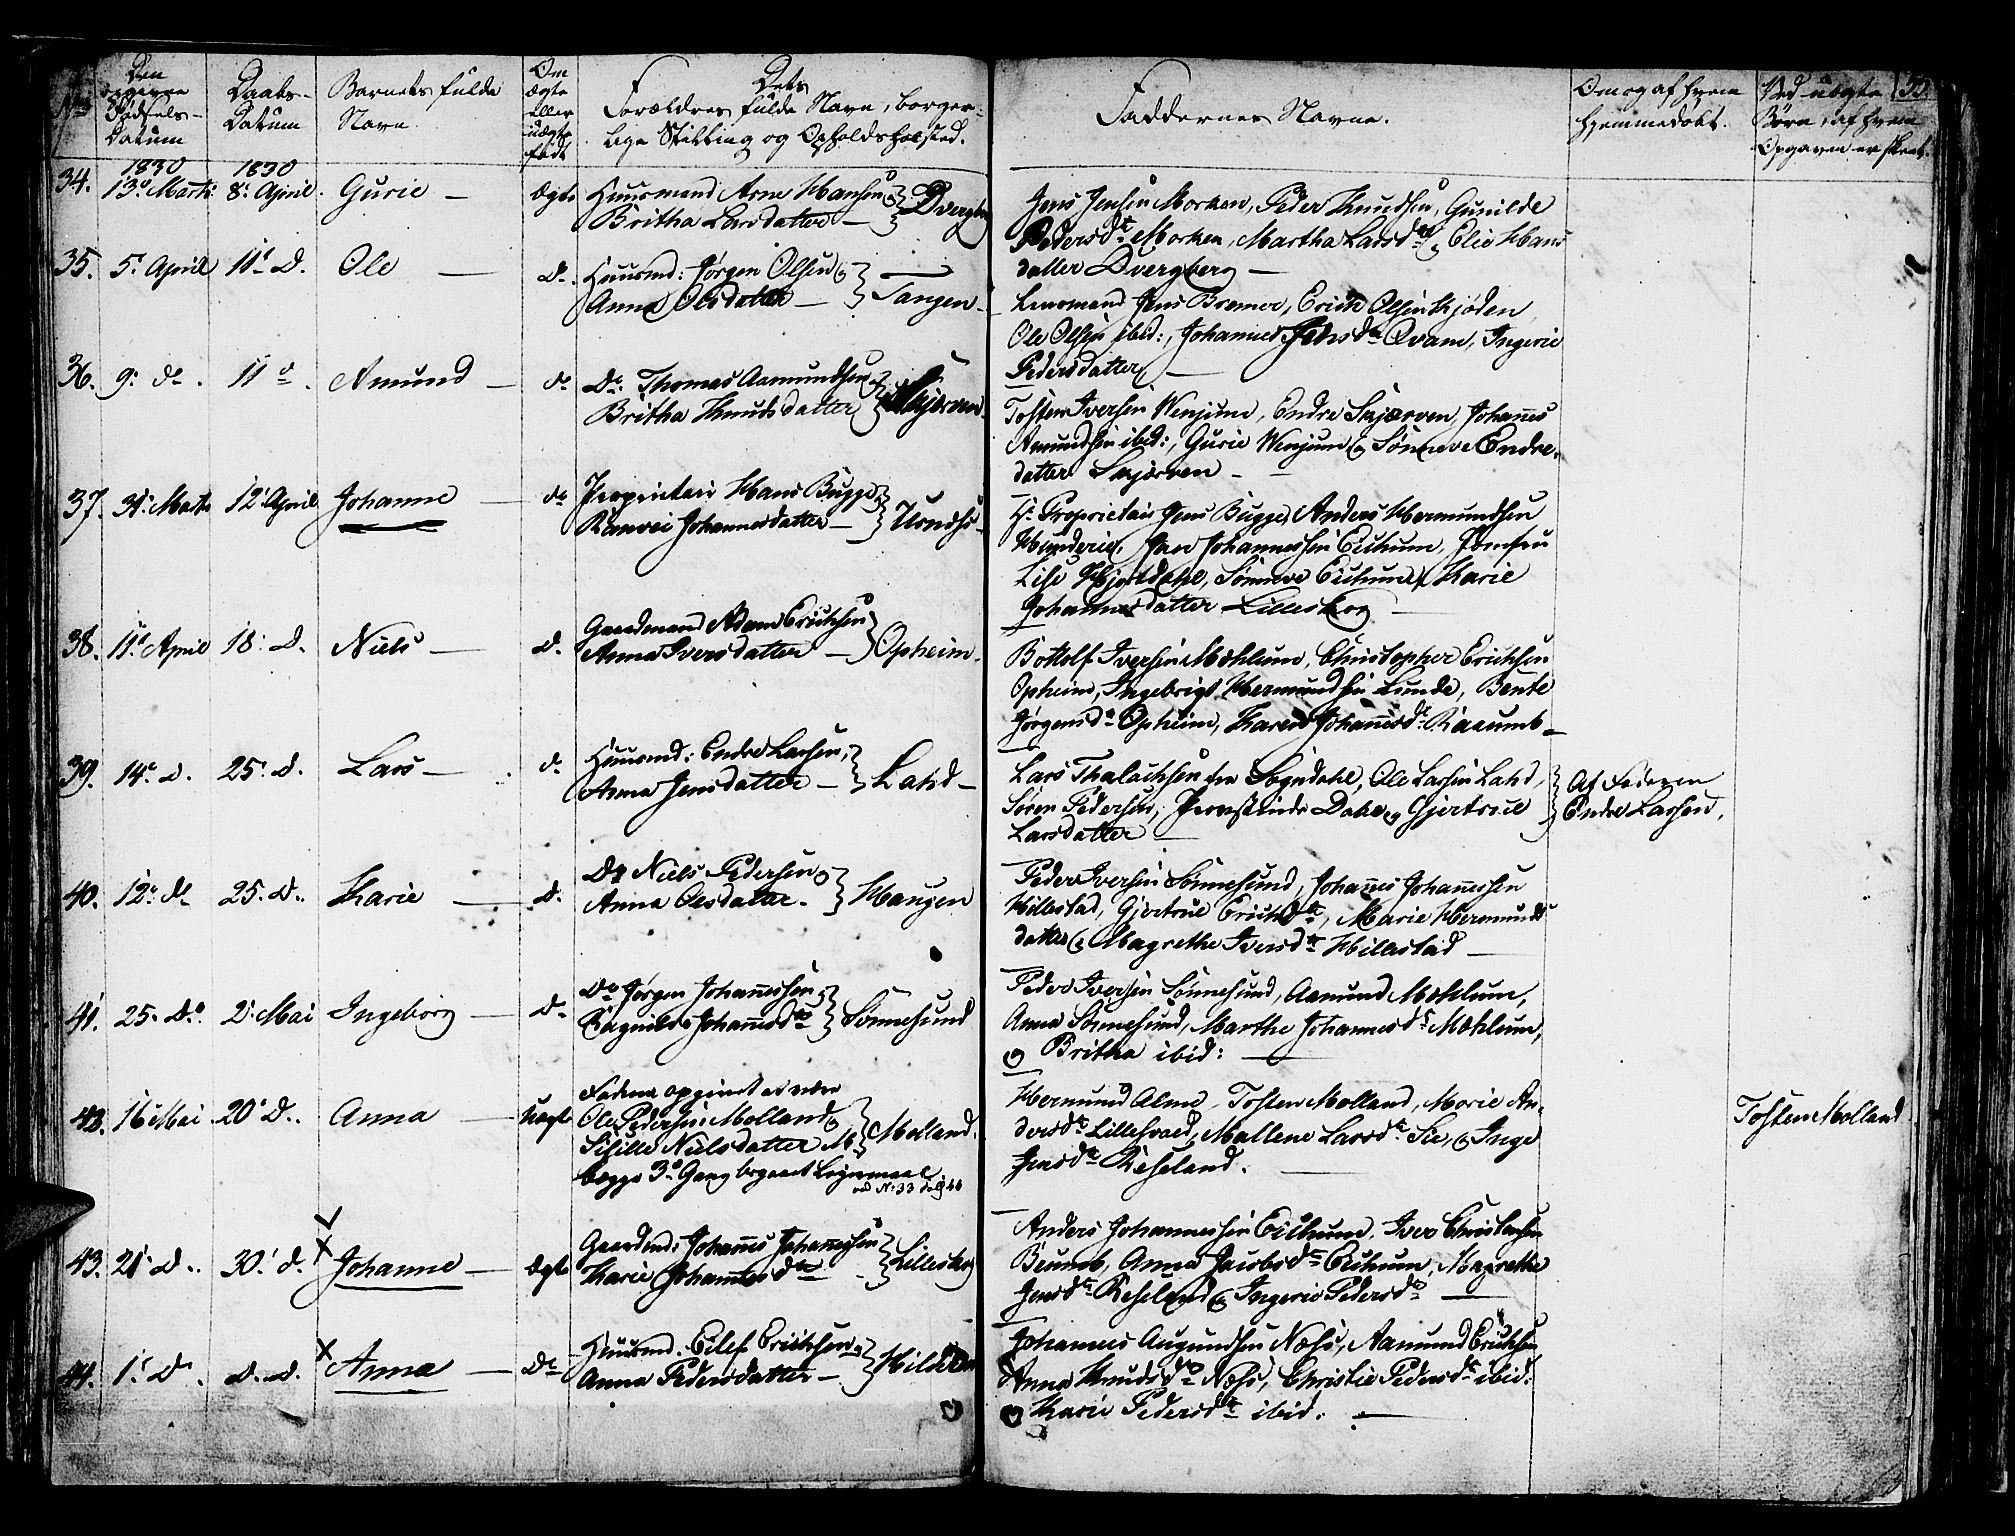 No
Den opgivne Fødsels-Datum
Daabs-Datum
Barnets fulde Navn.
Om ægte eller uægte født
Dets Forældres fulde Navn, borger-
lige Stilling og Opholdssted.
Faddernes Navne.
Om og af hvem hjemmedøbt.
Ved uægte Børn, af hvem Opgaven er skeet.
55.
1830 1830
34. 13d Marts 8d April. Gurie — ægte Huusmand Arne Hansen
Britha Larsdatter — Dvergberg
Jens Jensen Morken, Peder Knudsen, Gunilde
Pedersdr Morken, Martha Larsdr, Elie Hans
datter Dvergberg —
35. 5d April 11d D. Ole — do. Huusmd: Jørgen Olsen
Anna Olesdatter — Tangen
Lensmand Jens Bremer, Erich Olsen Skjøden
Ole Olsen ibid:, Johannes Jensdr Qvam, Ingerie
Pedersdatter —
36. 9d do. 11d. Amund — do Do. Thomas Aamundsen
Britha Knudsdatter Skjerven
Tosten Iversen Wenjum, Endre Skjærven, Johannes
Amundsen ibid:, Gurie Wenjum & Sønneve Endre-
datter Skjerven —
37. 31d Marts 12d April Johanne — do Proprietair Hans Bugge
Ranvei Johannesdatter —
Hr Proprietair Jens Bugge, Anders Hermundsen
Hunderie, Jan Johannessen Eithum, Jomfru
Lise Hjortdahl, Sønneve Eithum, Karie
Johannesdatter Lilleskog —
38. 11d April 18d D. Niels — do. Gaardmand Adam Erichsen
Anna Iversdatter — Opheim
Bottolf Iversen Mohlum, Christopher Erichsen
Opheim, Ingebrigt Hermundsen Lunde, Bente
Jørgensdr Opheim, Karen Johannesdr Raaumb —
39. 14d d. 25d d. Lars — do Huusmd: Endre Larsen,
Anna Jensdatter — Latid —
Lars Thalachsen fra Sogndahl, Ole Larsen Latid,
Søren Pedersen, Provstinde Dahl & Gjertrue
Larsdatter —
Af Faderen
Endre Larsen,
40. 12d do 25. D. Karie — do. Do Niels Pedersen
Anna Olesdatter. Haugen
Peder Iversen Sønnesund, Johannes Johannessen
Hillestad, Gjertrue Erichdr, Marie Hermunds
datter & Magrethe Iversdr Hillestad —
41. 25. Do. 2d Mai Ingeborg — do Do Jørgen Johannessen
Ragnilde Johannesdr Sønnesund
Peder Iversen Sønnesund, Aamund Mohlum,
Anna Sønnesund, Marthe Johannesdr Mohlum,
& Britha ibid: —
42. 16d Mai 20d D. Anna — uægte Faderen opgivet at være
Ole Pedersen Molland
Sisille Nielsdatter M. Molland.
begge 3d Gang begaaet Leiermaal
Hermund Alme, Tosten Molland, Marie An-
dersdr Lillesvaed, Mallene Larsdr Sie, & Inge
Jensdr Reseland. —
Tosten Molland
43. 21d D. 30d d. Johanne — ægte Gaardmd: Johannes Johannessen
Karie Johannesdr — Lilleskog
Anders Johannessen Eithum, Iver Christensen
Beumb, Anna Jacobsdr Eithum, Magrethe
Jensdr Reseland & Ingerie Pedersdr —
44. 1d D. D. D. Anna — Do Huusmd: Eilef Erichsen
Anna Pedersdatter —
Johannes Augundsen Næss, Aamund Erichsen,
Anna Knudsdr Næss, Christie Pedersdr ibid:
& Karie Pedersdr ibid. —